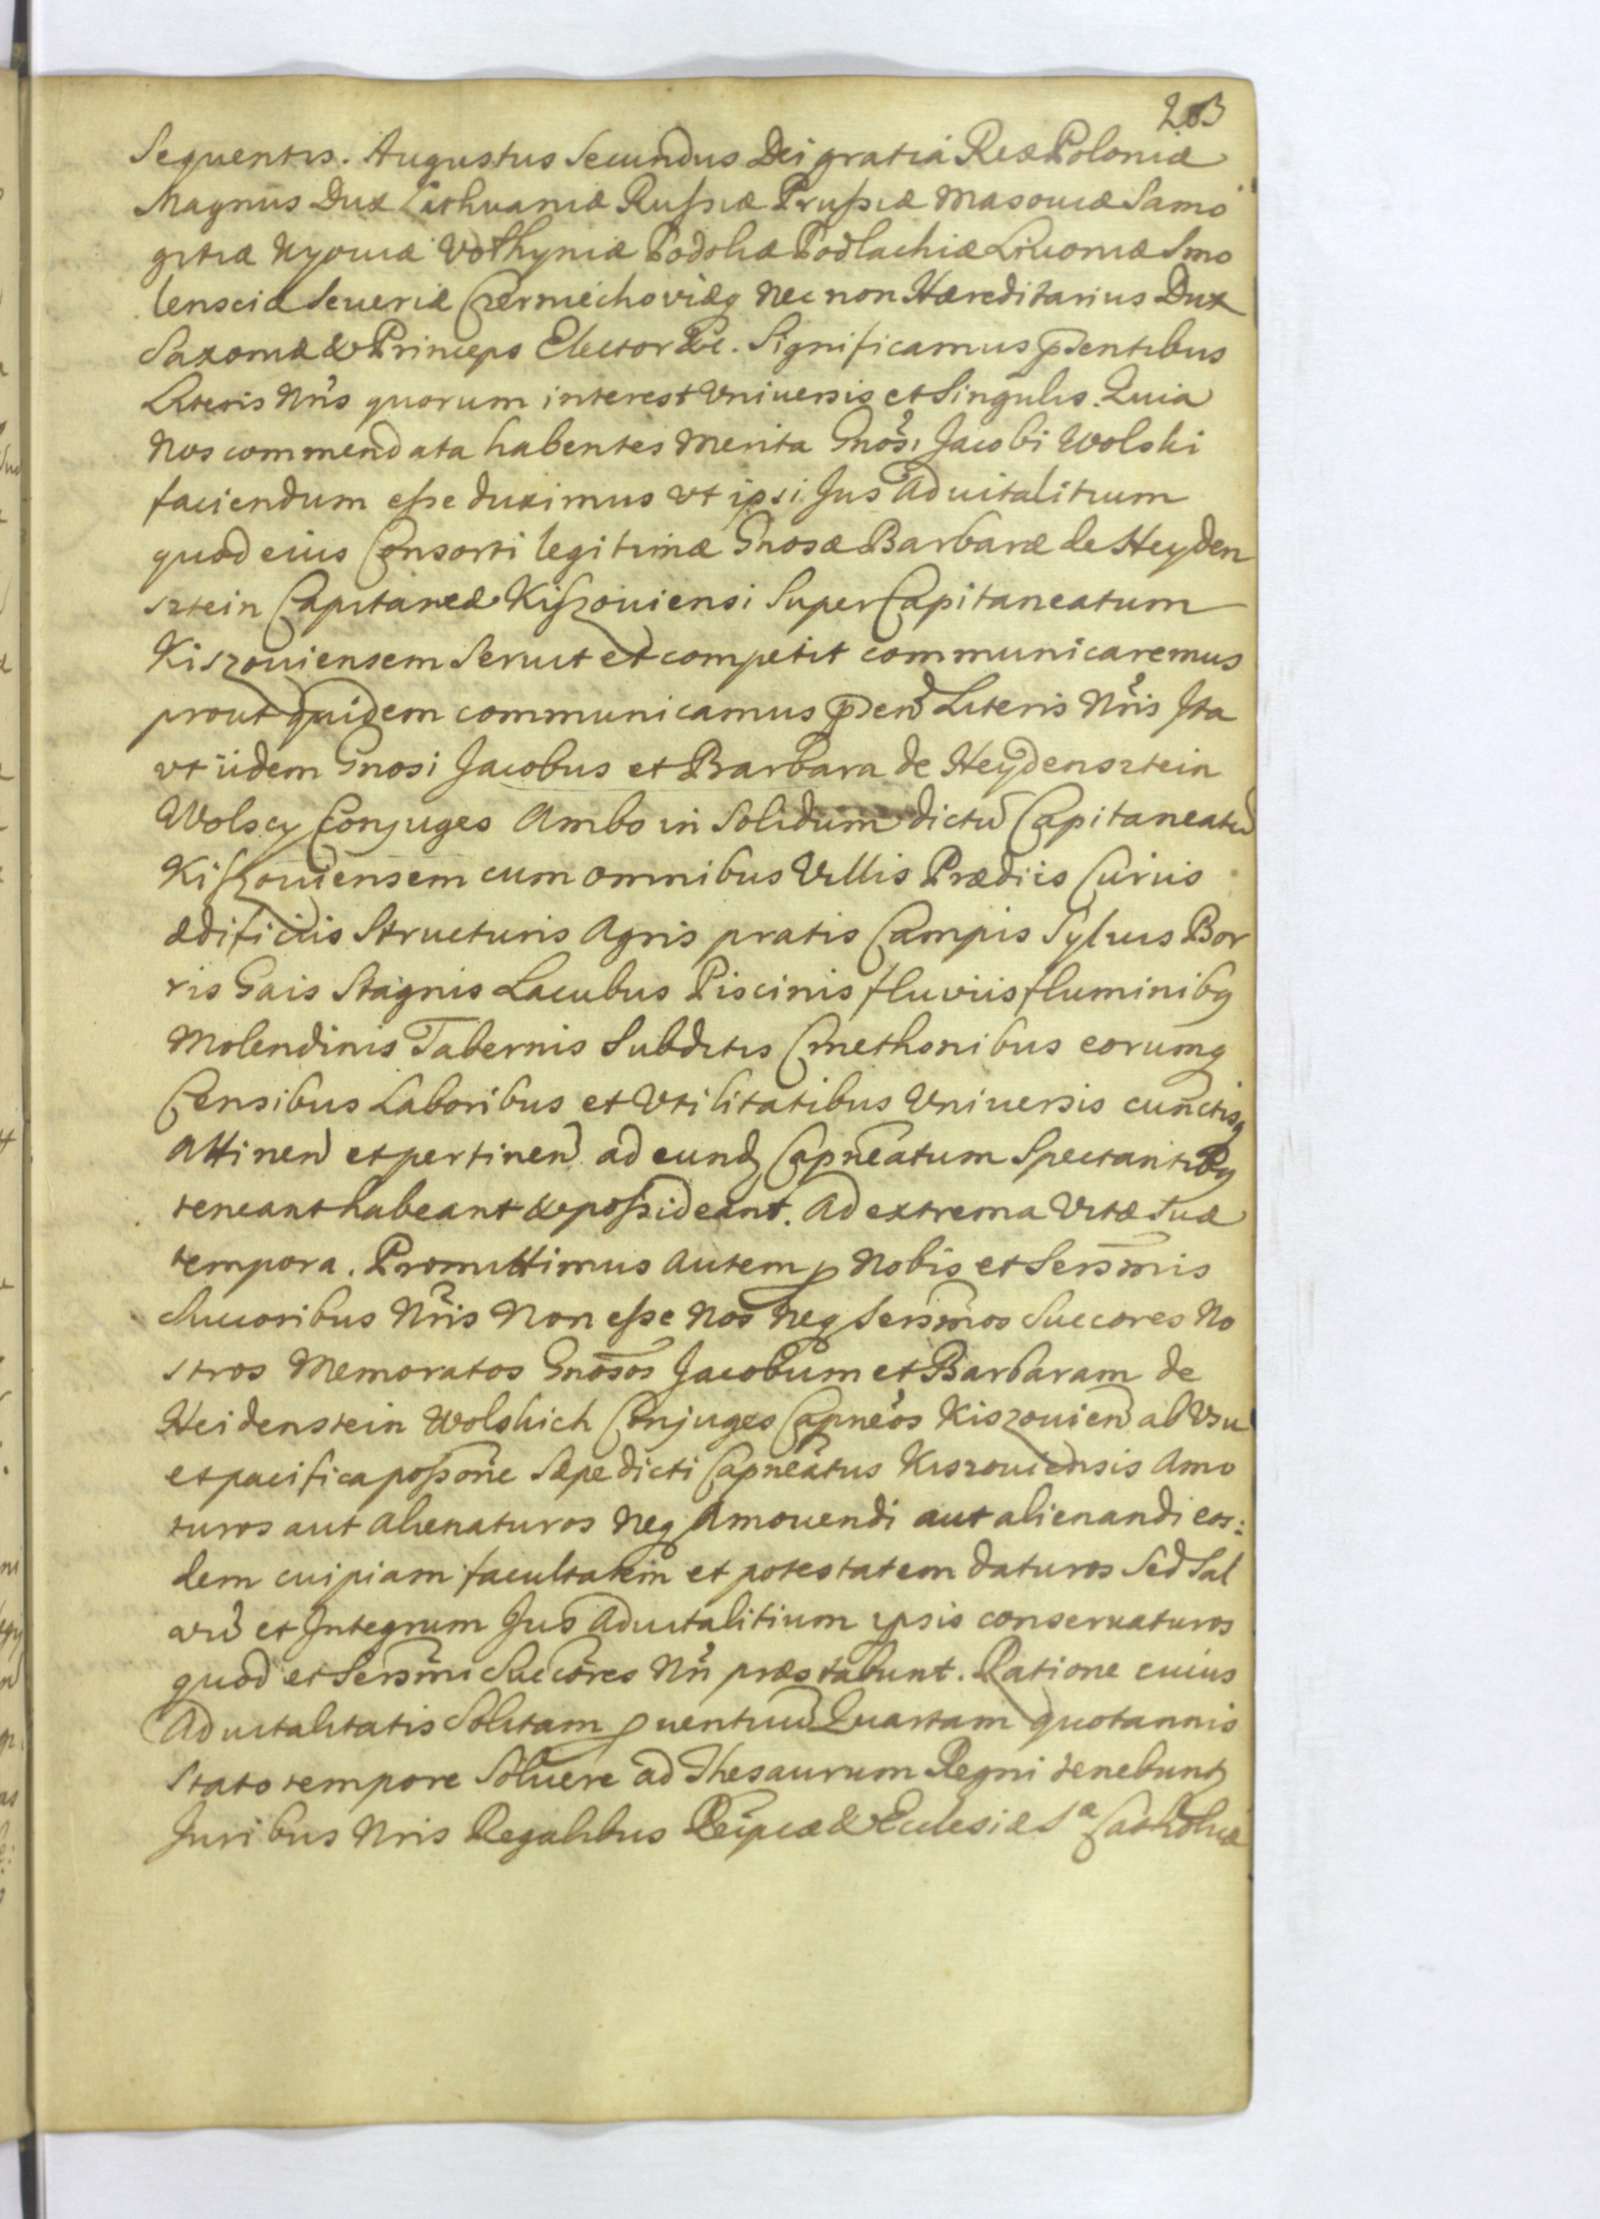 203
Sequentis. Augustus Secundus Dei gratia Rex Poloniæ
Magnus Dux Lithuaniæ Russiæ Prussiæ Masoviæ Samo
gitiæ Kyoviæ Volhyniæ Podoliæ Podlachiæ Livoniæ Smo
lensciæ Severiæ Czerniechoviæq Nec non Hæreditarius Dux
Saxoniæ & Princeps Elector &c. Significamus pñsentibus
Literis Nris quorum interest Vniversis et Singulis. Quia
Nos commendata habentes Merita Gnosi Jacobi Wolski
faciendum esse duximus vt ipsi Jus Advitalitium
quod eius Consorti legitimæ Gnosæ Barbaræ de Heyden
sztein Capitaneæ Kiszoviensi Super Capitaneatum
Kiszoviensem Servit et competit communicaremus
prout quidem communicamus pñsen Literis Nris Ita
vt iidem Gnosi Jacobus et Barbara de Heydensztein
Wolscy Conjuges Ambo in Solidum dictu Capitaneatu
Kiszoviensem cum omnibus Villis Prædiis Curiis
ædificiis Structuris Agris pratis Campis Sylvis Bor
ris Gais Stagnis Lacubus Piscinis fluviis fluminibq
Molendinis Tabernis Subditis Cmethonibus eorumq
Censibus Laboribus et Vtilitatibus Vniversis cunctisq
Attinen et pertinen ad eund Capneatum Spectantibq
teneant habeant & possideant. Ad extrema Vitæ Suæ
tempora. Promittimus autem p Nobis et Sersmis
Succoribus Nris Non esse Nos Neq Sersmos Succores No
stros Memoratos Gnosos Jacobum et Barbaram de
Heidenstein Wolskich Conjuges Capneos Kiszovien ab Vsu
et pacifica possone Sæpe dicti Capneatus Kiszoviensis Amo
turos aut alienaturos Neq Amovendi aut alienandi eos:
dem cuipiam facultatem et potestatem daturos Sed Sal
vu et Integrum Jus Advitalitium ipsis conservaturos
quod et Sersmi Succores Nri præstabunt. Ratione cuius
Advitalitatis Solitam pventuu Quartam quotannis
Stato tempore Solvere ad Thesaurum Regni tenebunt
Juribus Nris Regalibus Reipcæ & Eclesiæ Sæ Catholicæ